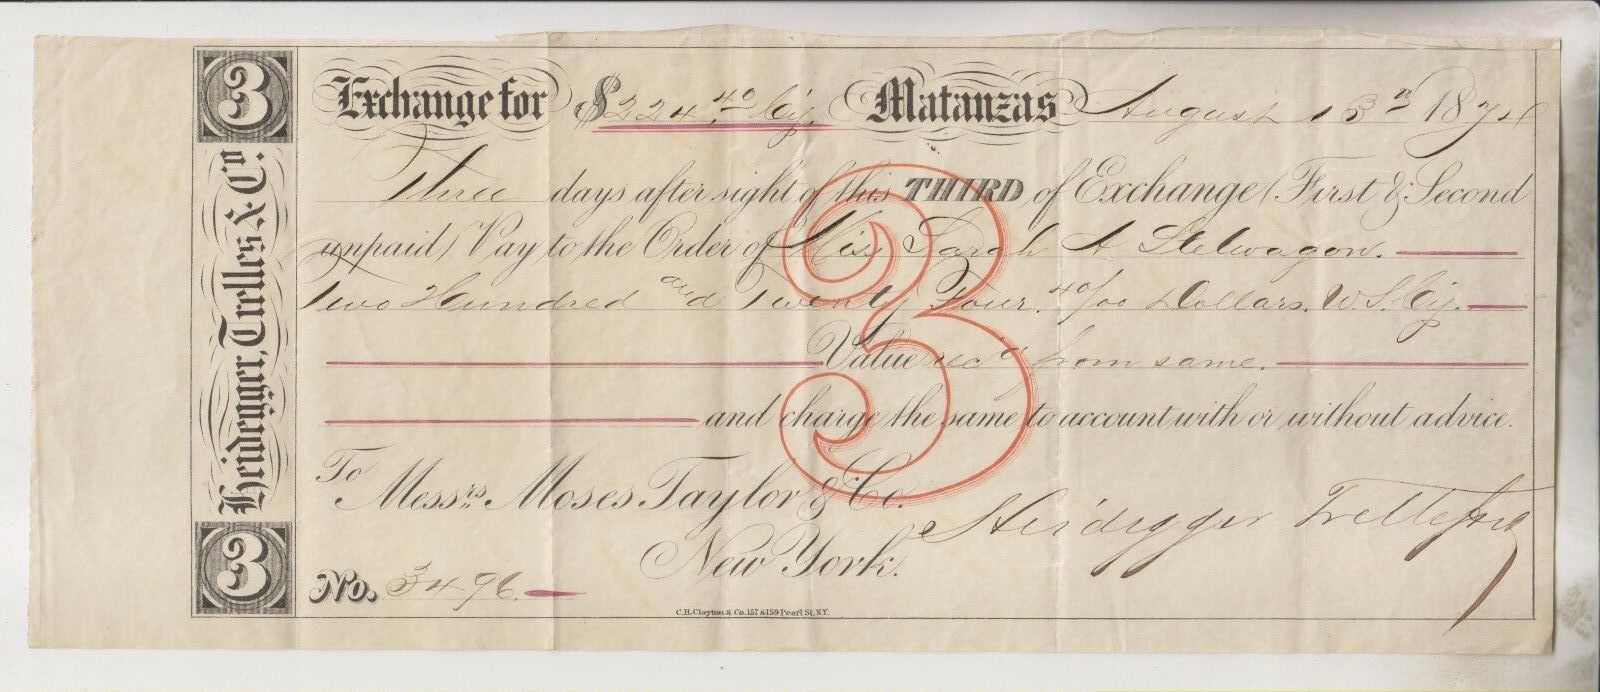 3
Heidegger, Trelles & Co.
3
Exchange for $ 224.40 Cy. Matanzas August 13th 187
Three days after sight of this THIRD of Exchange (First & Second
unpaid) Pay to the Order of Miss Sarah A Stelwagon.
Two Hundred and Twenty Four 40/00 Dollars. U.S. Cy.
Value recd from same.
and charge the same to account with or without advice.
3
To Messrs. Moses Taylor & Co.
New York.
Heidegger Trelles & Co
No. 3496.
C.H. Clayton & Co. 157 & 159 Pearl St. N.Y.